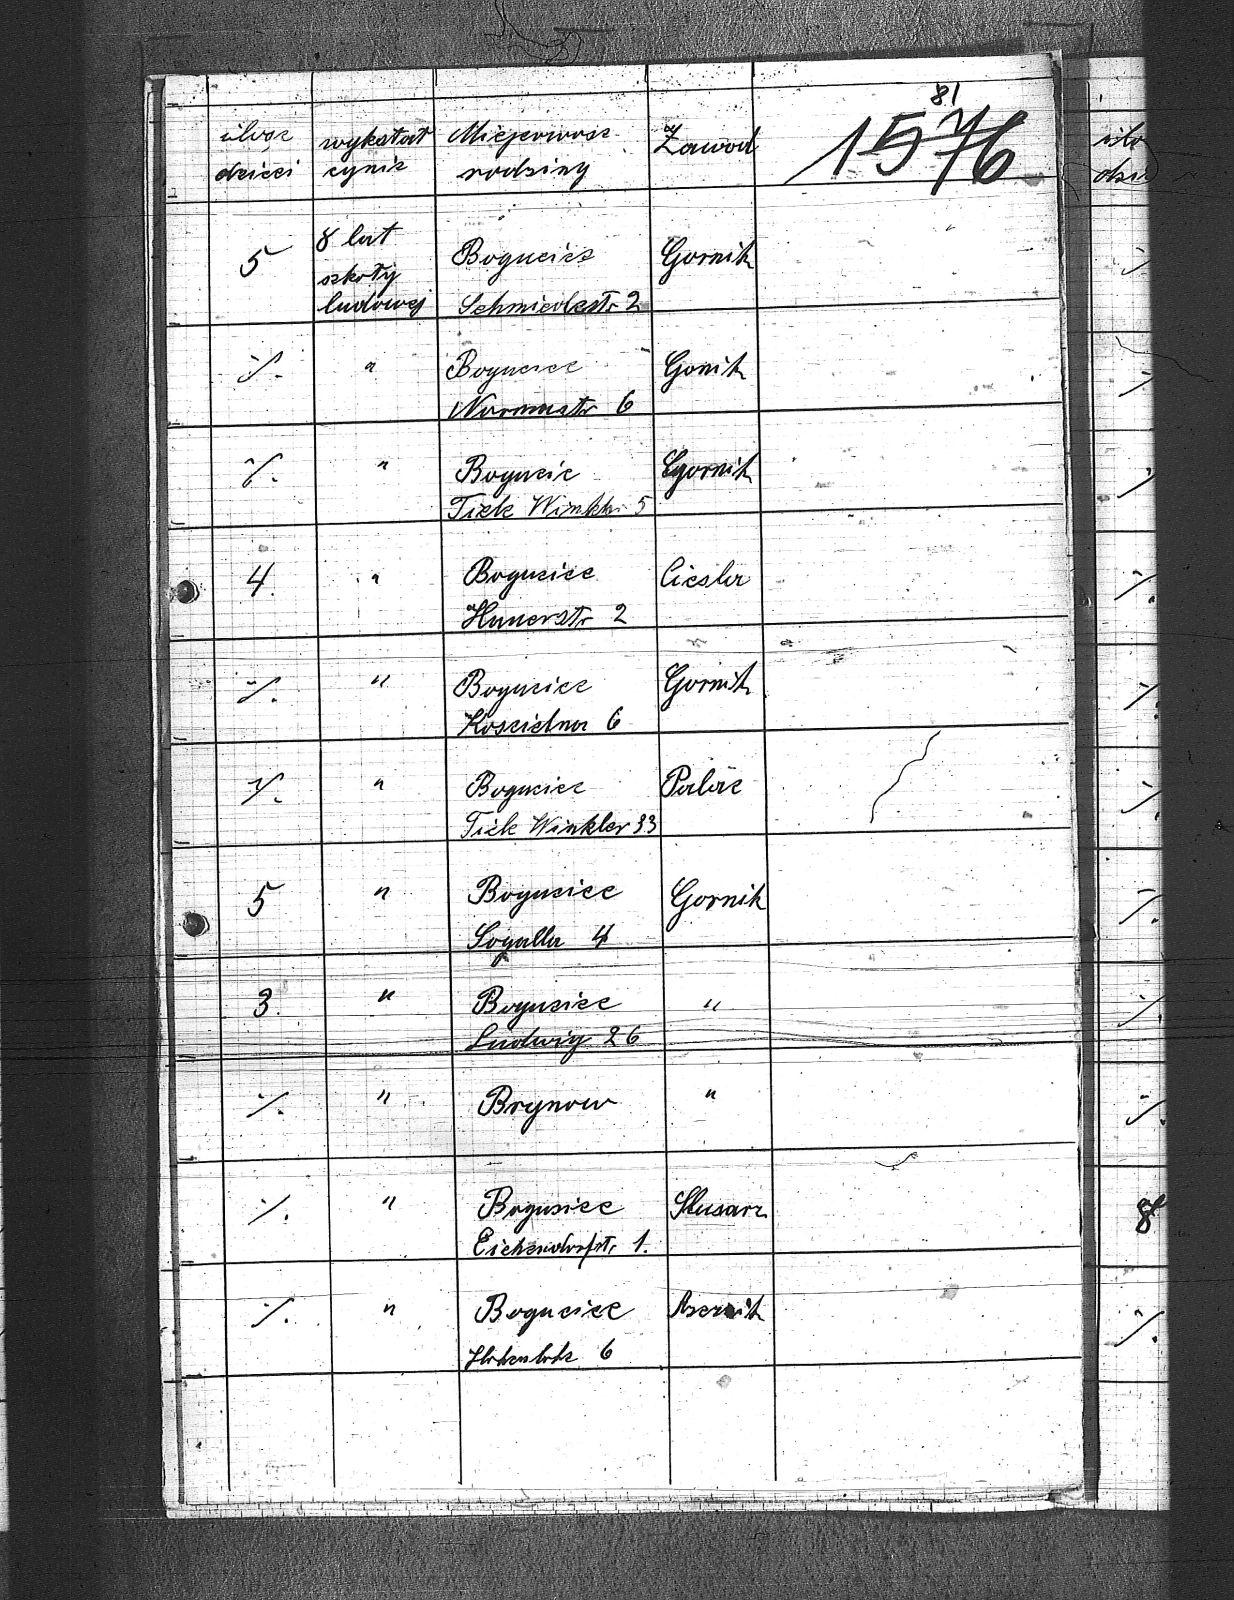 81
1576
ilosc wykstat Miejscowosc Zawod
dzieci cynie rodziny
8 lat
5 szkoły Bogucice Gornik
ludowej Schmiedestr 2
·/. " Bogucice Gonik
Normastr 6
·/. " Bogucic Gornik
Tiele Winkler 5
4. " Bogucice Ciesla
Hunerstr 2
·/. " Bogucice Gornik
Koscielna 6
·/. " Bogucice Palac
Tiele Winkler 33
5 " Bogucice Gornik
Sogalla 4
3. " Bogucice "
Ludwig 26
·/. " Brynow "
·/. " Bogucice Slusarz
Eichendorfstr 1.
·/. " Bogucice
6
8